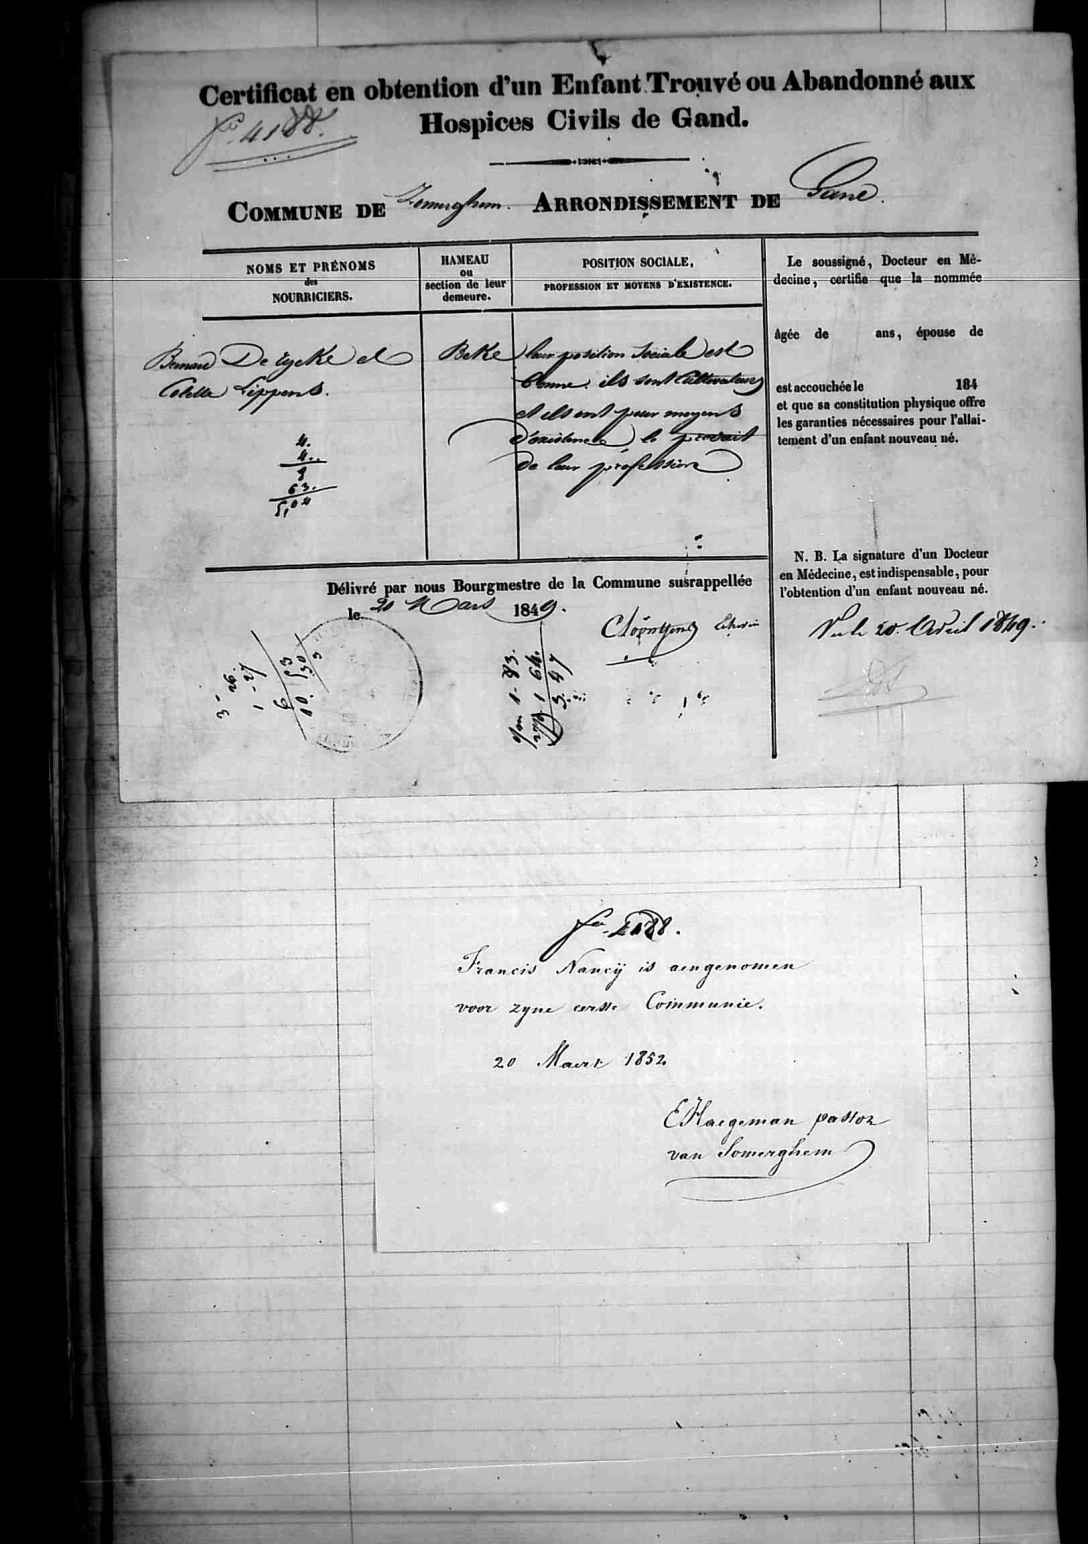 Certificat en obtention d'un Enfant Trouvé ou Abandonné aux
Hospices Civils de Gand.
fo. 4188.
COMMUNE DE Somerghem. ARRONDISSEMENT DE Gand.
NOMS ET PRÉNOMS
des
NOURRICIERS.
HAMEAU
ou
section de leur
demeure.
POSITION SOCIALE,
PROFESSION ET MOYENS D'EXISTENCE.
Bernard De Eycke et
Colette Lippens.
Beke
leur position sociale est
bonne. ils sont Cultivateurs
et ils ont pour moyens
d'existence le produit
de leur profession
4.
4.
8
63.
5,04
Le soussigné, Docteur en Mé-
decine, certifie que la nommée
âgée de ans, épouse de
est accouchée le 184
et que sa constitution physique offre
les garanties nécessaires pour l'allai-
tement d'un enfant nouveau né.
N. B. La signature d'un Docteur
en Médecine, est indispensable, pour
l'obtention d'un enfant nouveau né.
Délivré par nous Bourgmestre de la Commune susrappellée
le 20 Mars 1849.
Vu le 20 Avril 1849.
3 - 26.
1 - 27
6 53
10. 30
3
1 - 83.
1 64.
3 47
fo. 4188.
Francis Nancÿ is aengenomen
voor zyne eerste Communie.
20 Maert 1852
E Haegeman pastor
van Somerghem